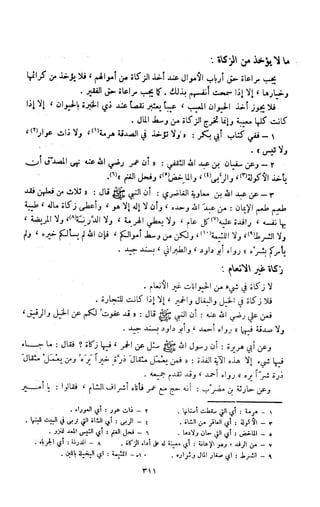 ما لا يؤخذ من الزكاة :
يجب مراعاة حق أرباب الأموال عند أخذ الزكاة من أموالهم ، فلا يؤخذ من كرائمها
وخيارها ، إلا إذا سمحت أنفسهم بذلك . كما يجب مراعاة حق الفقير .
فلا يجوز أخذ الحيوان المعيب ، عيباً يعتبر نقصاً عند ذوي الخبرة بالحيوان ، إلا إذا
كانت كلها معيبة وإنما تخرج الزكاة من وسط المال .
١ - ففي كتاب أبي بكر : « ولا تؤخذ في الصدقة هرمة (١) ، ولا ذات عوار (٢) ،
ولا تيس » .
٢ - وعن سفيان بن عبد الله الثقفي : « أن عمر رضي الله عنه نهى المصدق أن
يأخذ الأكولة (٣) ، والربى (٤) ، والماخض (٥) ، وفحل الغنم (٦) .
٣ - عن عبد الله بن معاوية الغاضري : أن النبي ﷺ قال : « ثلاث من فعلهن فقد
طعم طعم الإيمان : من عبد الله وحده ، وأن لا إله إلا هو ، وأعطى زكاة ماله ، طيبة
بها نفسه ، رافدة عليه (٧) كل عام ، ولا يعطي الهرمة ، ولا الدرنة (٨) ولا المريضة ،
ولا الشرط (٩) ولا اللئيمة (١٠) ولكن من وسط أموالكم ، فإن الله لم يسألكم خيره ، ولم
يأمركم بشره » رواه أبو داود ، والطبراني ، بسند جيد .
زكاة غير الأنعام :
لا زكاة في شيء من الحيوانات غير الأنعام .
فلا زكاة في الخيل والبغال والحمير ، إلا إذا كانت للتجارة .
فعن علي رضي الله عنه : أن النبي ﷺ قال : « قد عفوت لكم عن الخيل والرقيق ،
ولا صدقة فيها » رواه أحمد ، وأبو داود بسند جيد .
وعن أبي هريرة : أن رسول الله ﷺ سئل عن الحمر ، فيها زكاة ؟ فقال : ما جاء
فيها شيء إلا هذه الآية الفذة : « فمن يعمل مثقال ذرة خيراً يره ، ومن يعمل مثقال
ذرة شراً يره » رواه أحمد ، وقد تقدم جميعه .
وعن حارثة بن مضرب : أنه حج مع عمر فأتاه أشراف الشام ، فقالوا : يا أمير
١ - هرمة : أي التي سقطت أسنانها . ٢ - ذات عور : أي العوراء .
٣ - الأكولة : أي العاقر من الشاة . ٤ - الربى : أي الشاة التي تربى في البيت للبنها .
٥ - الماخض : أي التي حان ولادها . ٦ - فحل الغنم : أي التيس المعد للنزو .
٧ - من الرفد ، وهو الإعانة : أي معينة له على أداء الزكاة . ٨ - الدرنة : أي الجرباء .
٩ - الشرط : أي صغار المال وشراره . ١٠ - اللئيمة : أي البخيلة باللبن .
٣١١